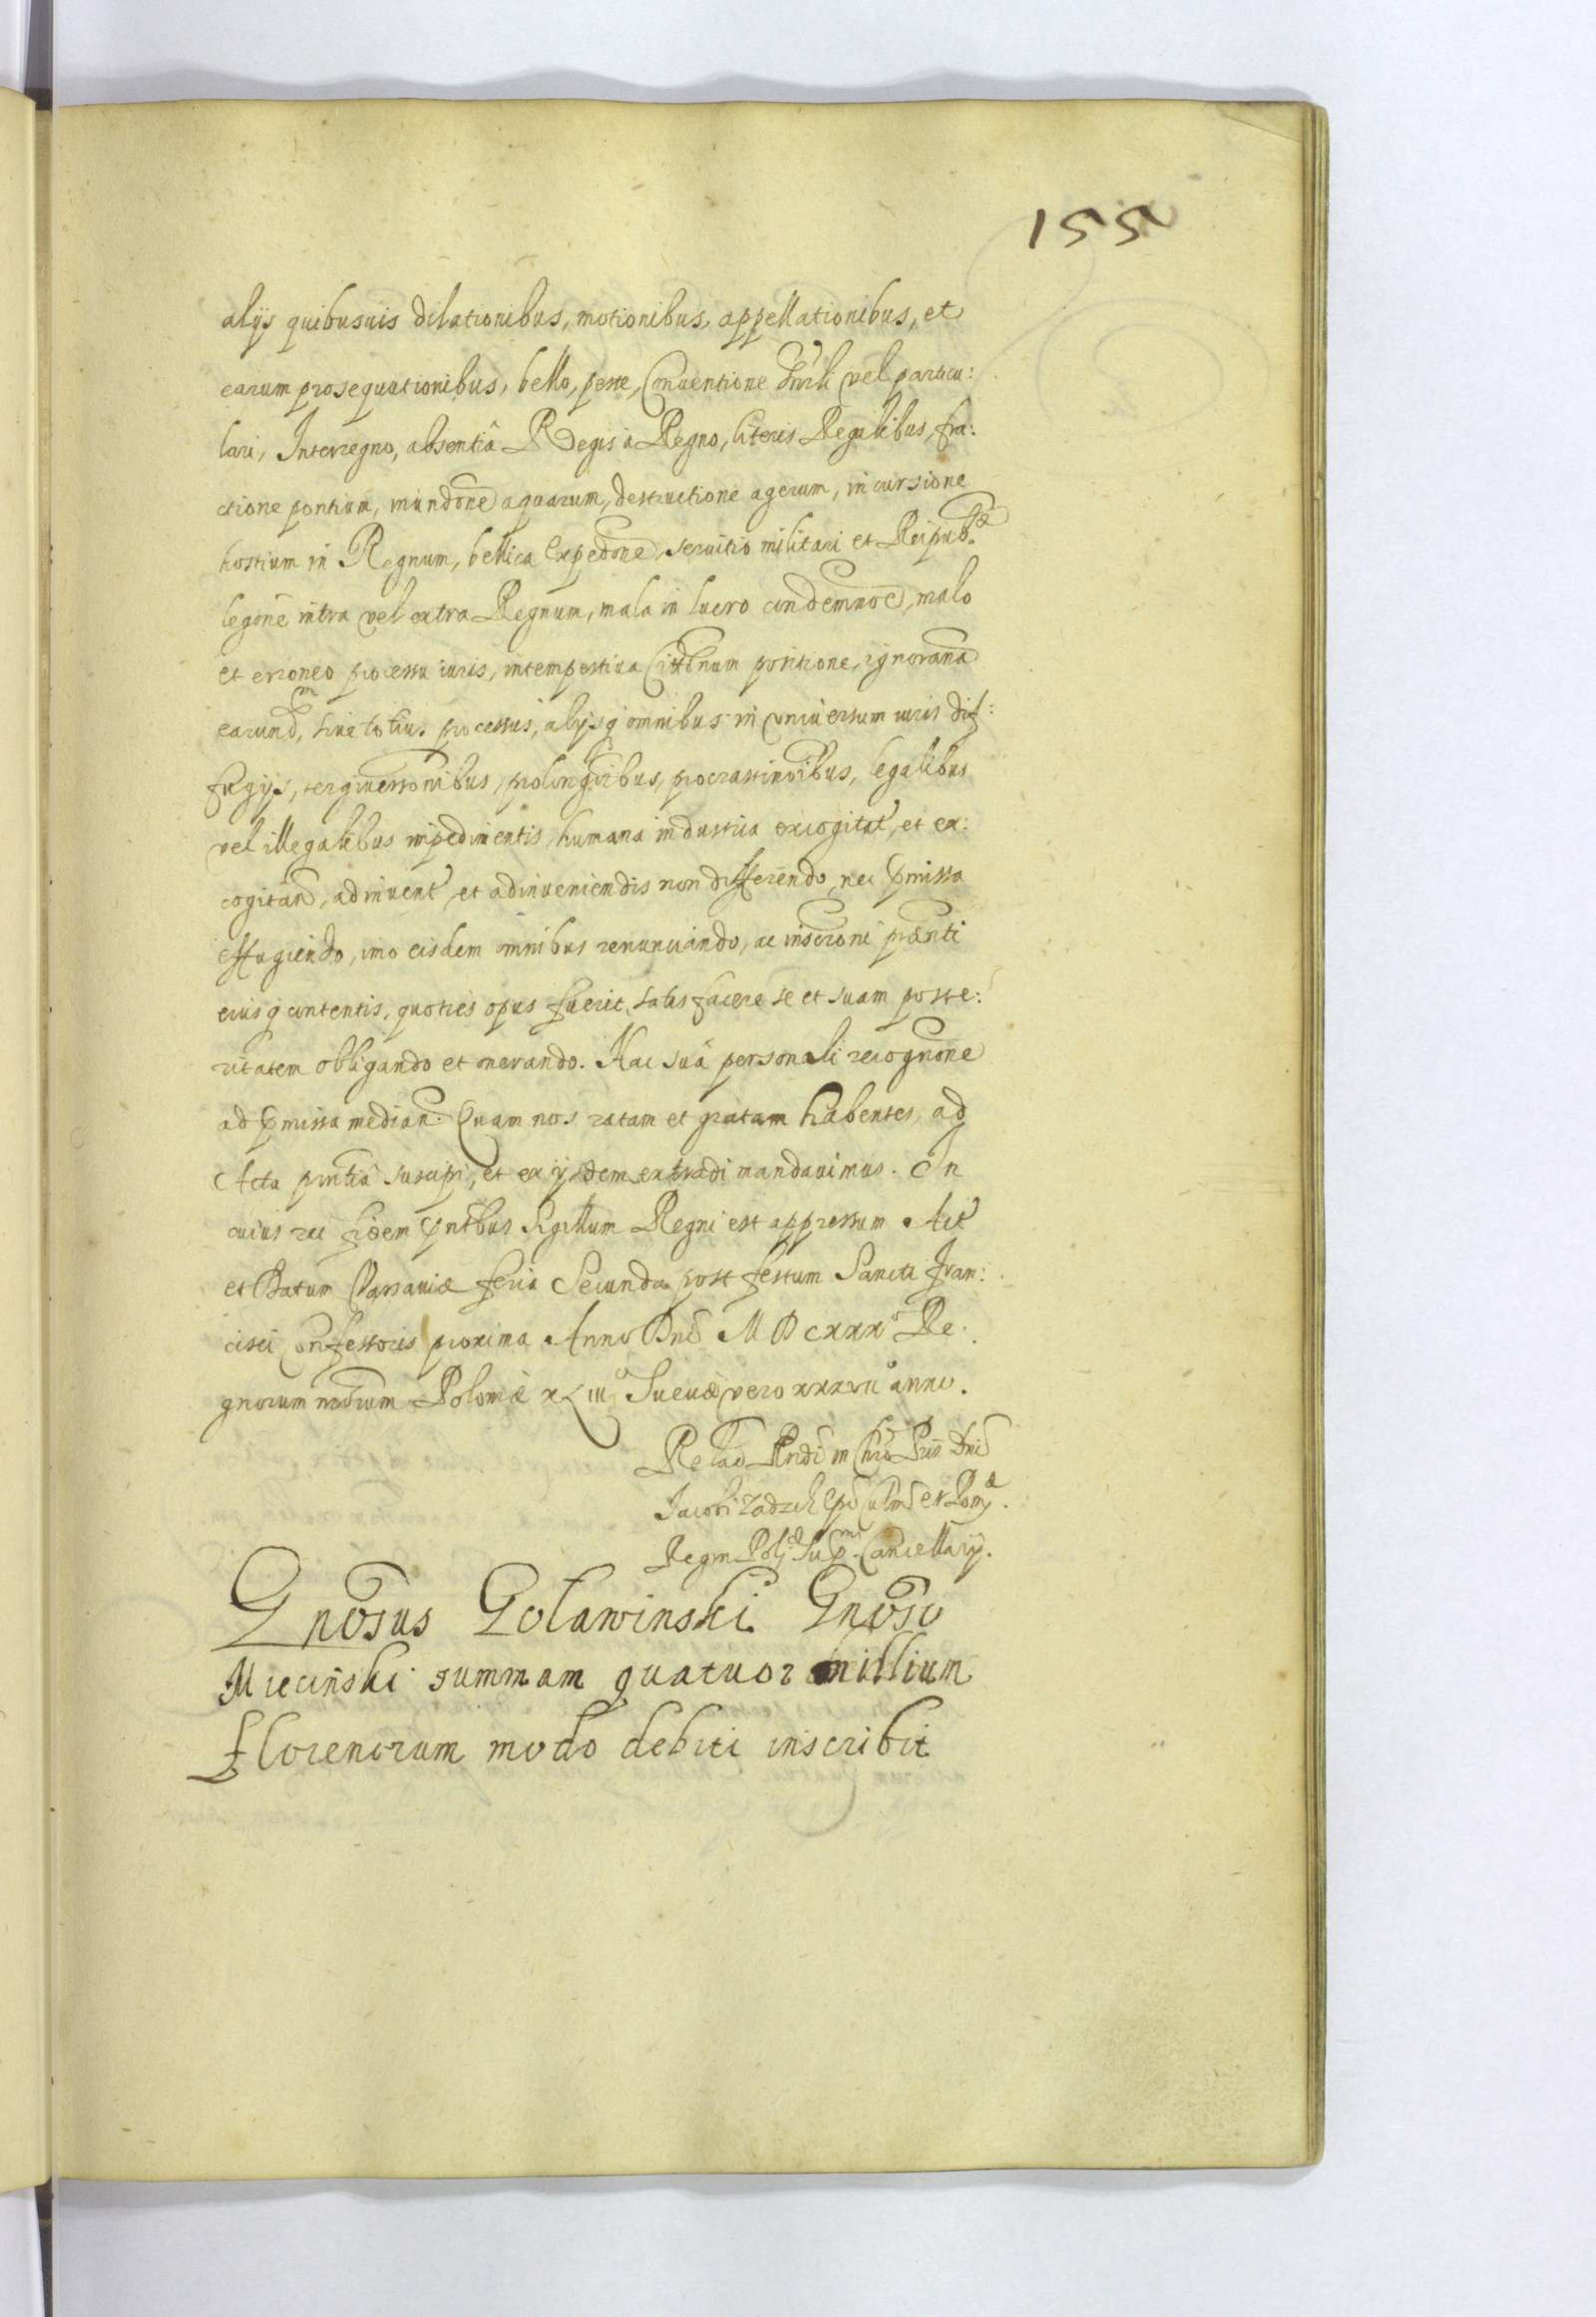 155
alijs quibusuis dilationibus, motionibus, appellationibus, et
earum prosequutionibus, bello, peste, Conuentione Gnrli vel particu:
lari, Interregno, absentiâ Regis à Regno, literis Regalibus, fra:
ctione pontium, inundone aquarum, destructione agerum, incursione
hostium in Regnum, bellica Expedone, seruitio militari et Reipubcæ
legone intra vel extra Regnum, mala in lucro condemnoe, malo
et erroneo processu iuris, intempestiua positione, ignorana
earundm, siue totius processus, alijsq omnibus in vniuersum iuris dif:
fugijs, tergiuersonibus, procrastinoibus, legalibus
vel illegalibus impedimentis, humana industria excogitat, et ex:
cogitand, adinuent et adinueniendis non differendo, nec pmissa
effugiendo, imo eisdem omnibus renunciando, ac inscroni pænti
eiusq contentis, quoties opus fuerit, satisfacere se et suam poste:
ritatem obligando et onerando. Hac suâ personali recognone
ad pmissa median. Quam nos ratam et gratam habentes, ad
Acta pntia suscipi, et ex ijsdem extradi mandauimus. In
cuius rei fidem pntbus Sigillum Regni est appressum. Act
et Datum Varsauiæ feria Secunda post festum Sancti Fran:
cisci Confessoris proxima Anno Dni MDCXXXo Re:
gnorum nrorum Poloniæ XLIIIo Sueciæ vero XXXVIIo anno.
Relao Rndi in Chro Pris Dni
Jacobi Zadzik Epi Culmen et Pom.
Regni Polæ Supmi Cancellarij.
Gnosus Golawinski Gnoso
Miecinski summam quatuor millium
florenorum modo debiti inscribit